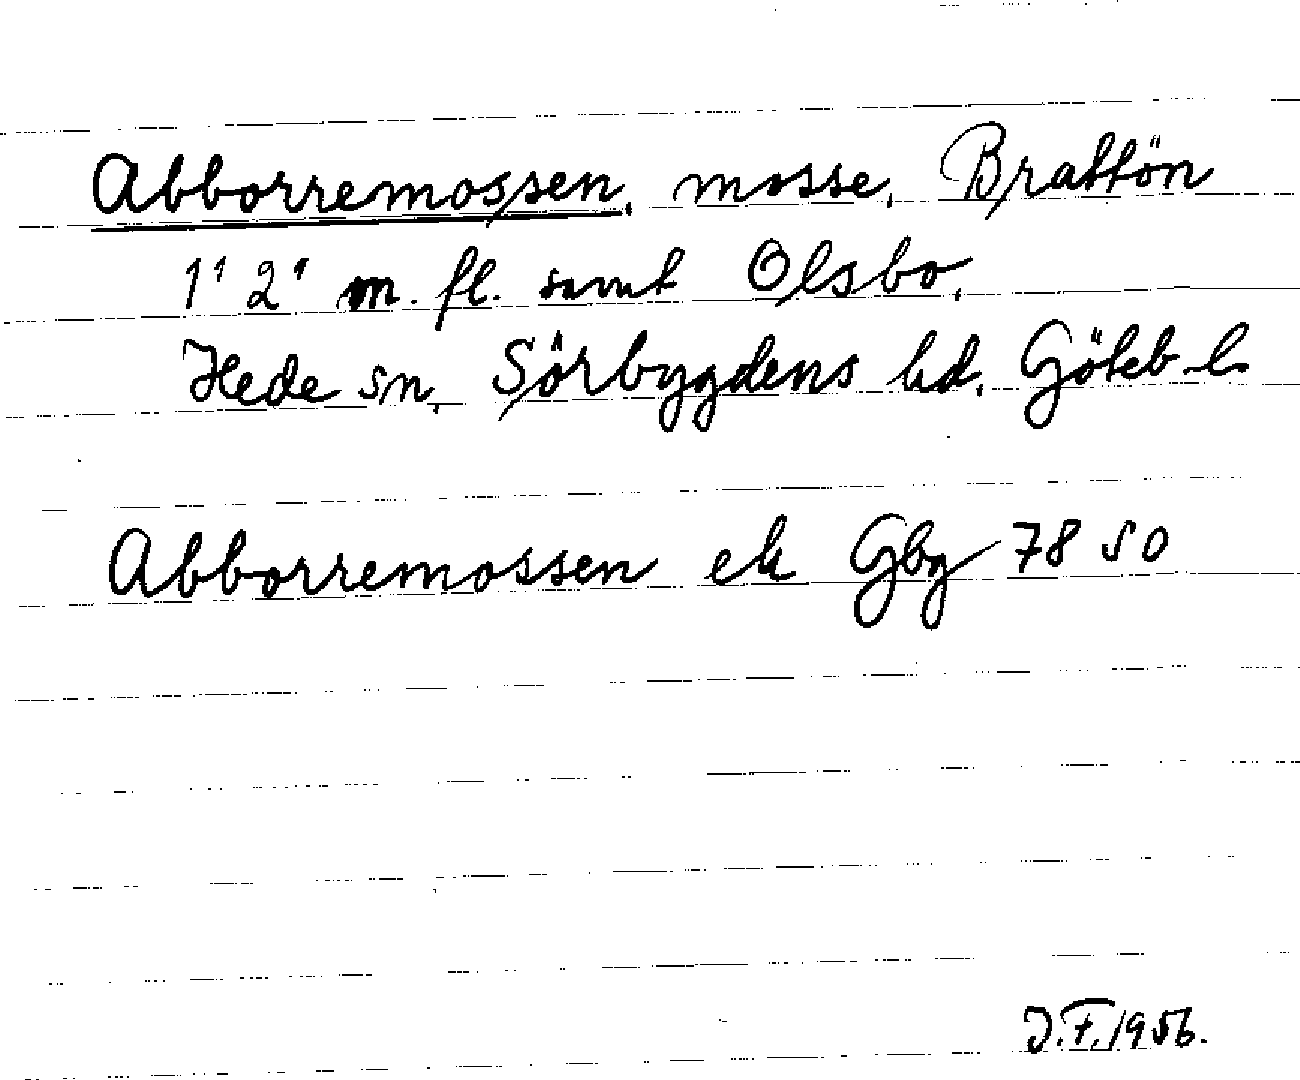 Abborremossen, mosse, Brattön
1¹ 2¹ m. fl. samt Olsbo,
Hede sn, Sörbygdens hd, Göteb. l.
Abborremossen ek Gbg 78 50
J.F. 1956.